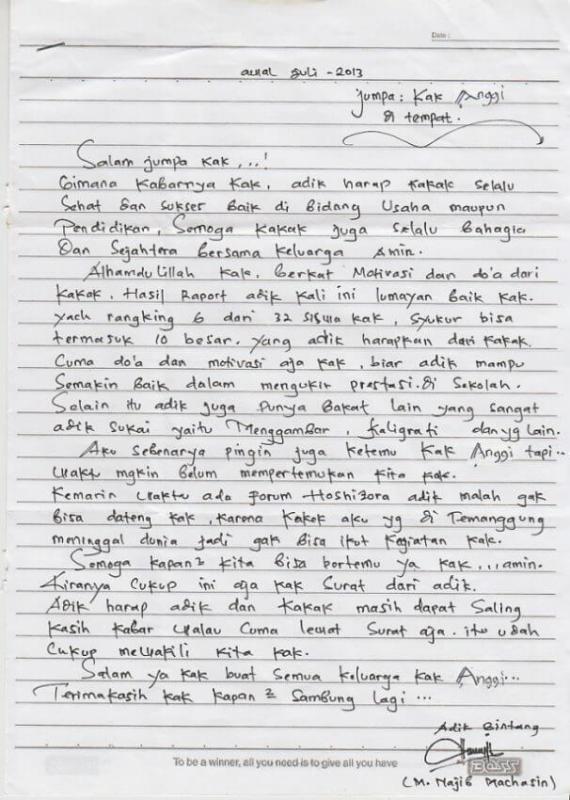 Date :
awal Juli - 2013
Jumpa : Kak Anggi
di tempat.
Salam jumpa kak, ..!
Gimana kabarnya kak, adik harap kakak selalu
sehat dan sukses baik di bidang usaha maupun
pendidikan, semoga kakak juga selalu bahagia
dan sejahtera bersama keluarga amin.
Alhamdulillah kak, berkat motivasi dan do'a dari
kakak, Hasil Raport adik kali ini lumayan baik kak.
yach rangking 6 dari 32 siswa kak, syukur bisa
termasuk 10 besar. yang adik harapkan dari kakak.
Cuma do'a dan motivasi aja kak, biar adik mampu
semakin baik dalam mengukir prestasi di sekolah.
Selain itu adik juga punya bakat lain yang sangat
adik sukai yaitu Menggambar, kaligrafi dan yg lain.
Aku sebenarya pingin juga ketemu kak Anggi tapi..
waktu mgkin belum mempertemukan kita kak.
Kemarin waktu ada forum Hoshizora adik malah gak
bisa dateng kak, karena kakek aku yg di Temanggung
meninggal dunia jadi gak bisa ikut kegiatan kak.
Semoga kapan2 kita bisa bertemu ya kak ,...amin.
Kiranya cukup ini aja kak surat dari adik.
Adik harap adik dan kakak masih dapat saling
kasih kabar walau cuma lewat surat aja. itu udah
cukup mewakili kita kak.
Salam ya kak buat semua keluarga kak Anggi...
Terimakasih kak kapan2 sambung lagi ...
Adik Bintang
To be a winner, all you need is to give all you have
BOSS
(M. Najib Machasin)